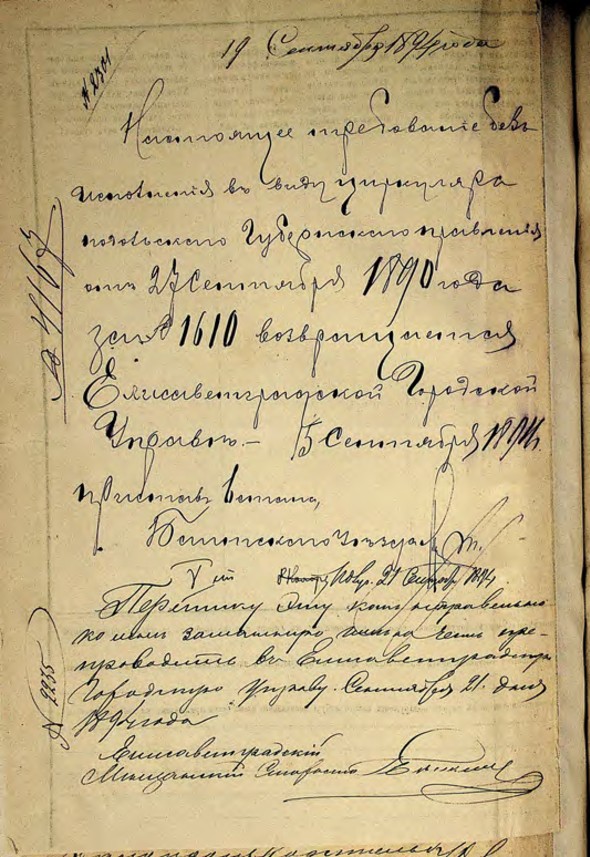 19 Сентября 1894 года
№ 2301
Настоящее требованіе безъ
исполненія въ виду циркуляра
подольскаго Губернскаго правленія
отъ 27 Сентября 1890 года
за № 1610 возвращается
Елисаветградской Городской
Управѣ. — 15 Сентября 1894 г.
№ 4167
Приставъ 1 стана,
Уѣзда
V ст 21 Сентяб 1894
Переписку эту какъ
ко мнѣ имѣю честь пре-
проводить въ Елисаветградскую
Городскую Управу. Сентября 21. дня
1894 года
№ 2235
Елисаветградскій
Мѣщанскій Староста